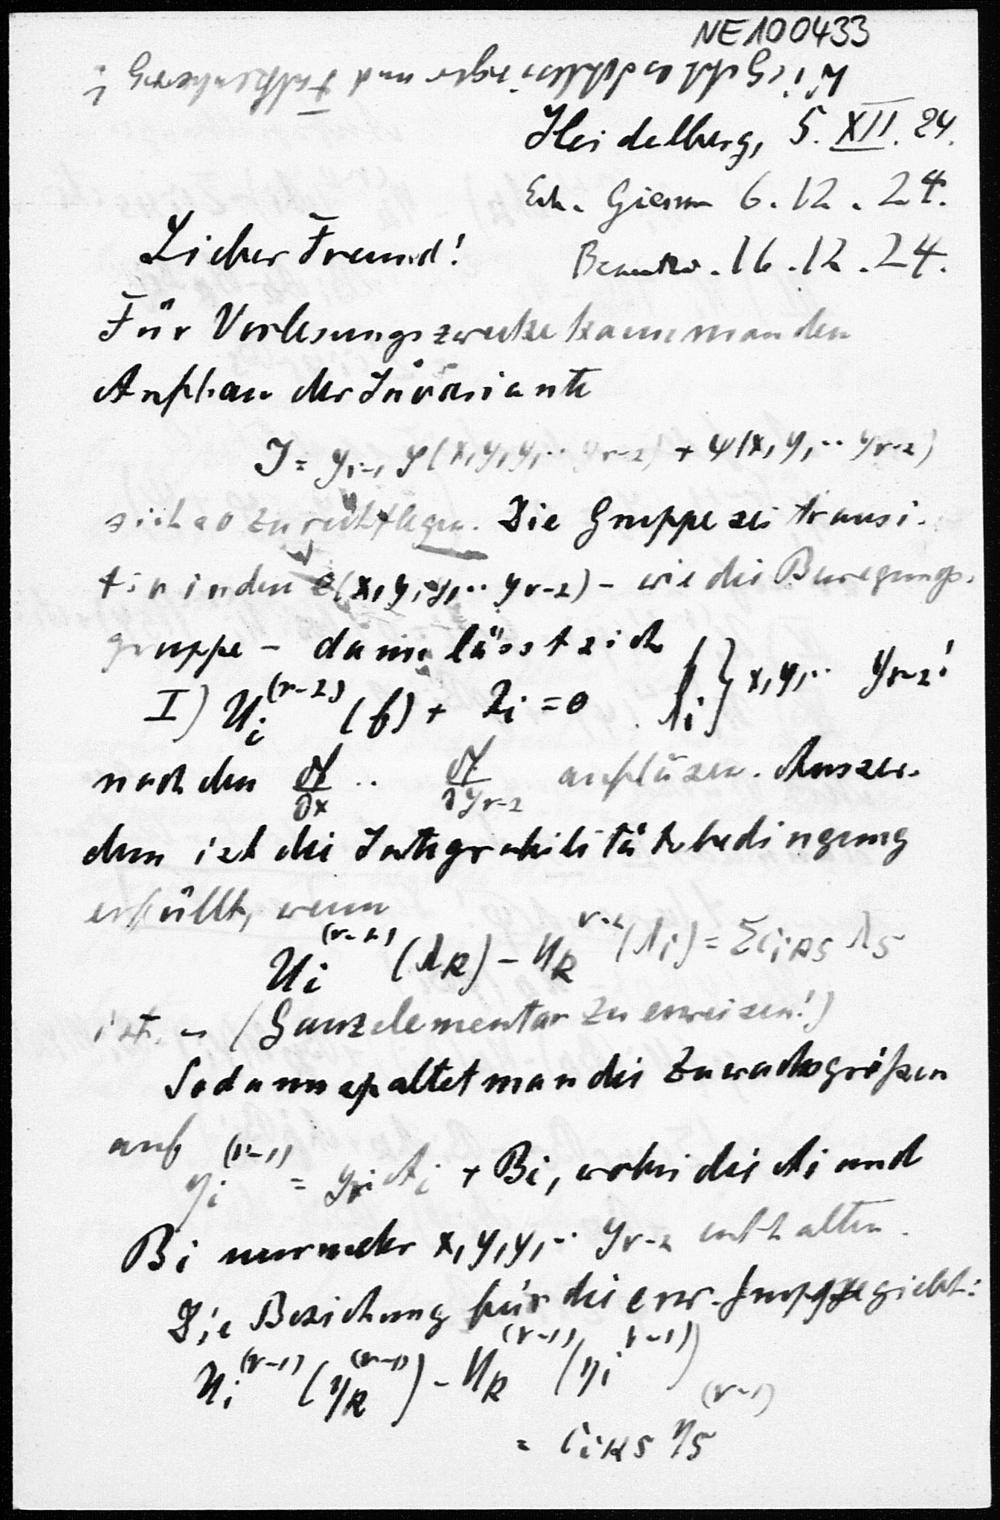 NE100433
Wie geht es Schlesinger und Falkenberg?
Heidelberg, 5. XII. 24.
Erh. Giessen 6.12.24.
Lieber Freund!
Beantw. 16.12.24.
Für Vorlesungszwecke kann man den
Aufbau der Invariante
J = y_{r-1} φ(x, y, y_1 ·· y_{r-2}) + ψ(x, y, ·· y_{r-2})
sich so zurechtlegen. Die Gruppe sei transi-
tiv in den (x, y, y_1 ·· y_{r-2}) – wie die Bewegungs-
gruppe – dann lässt sich
I) U_i^{(r-2)} (f) + λ_i = 0 λ_i } x, y, ·· y_{r-2}!
nach den ∂f/∂x ·· ∂f/∂y_{r-2} auflösen. Ausser-
dem ist die Integrabilitätsbedingung
erfüllt, wenn
U_i^{(r-2)} (λ_k) – U_k^{r-2} (λ_i) = Σ c_{iks} λ_s
ist. – (Ganz elementar zu erweisen!)
Sodann spaltet man die Zuwachsgrößen
auf
η_i^{(r-1)} = y_{r-1} A_i + B_i, wobei die A_i und
B_i nur mehr x, y, y_1 ·· y_{r-2} enthalten.
Die Beziehung für die erw. Gruppe giebt:
U_i^{(r-1)} (η_k^{(r-1)}) – U_k^{(r-1)} (η_i^{(r-1)})
= c_{iks} η_s^{(r-1)}